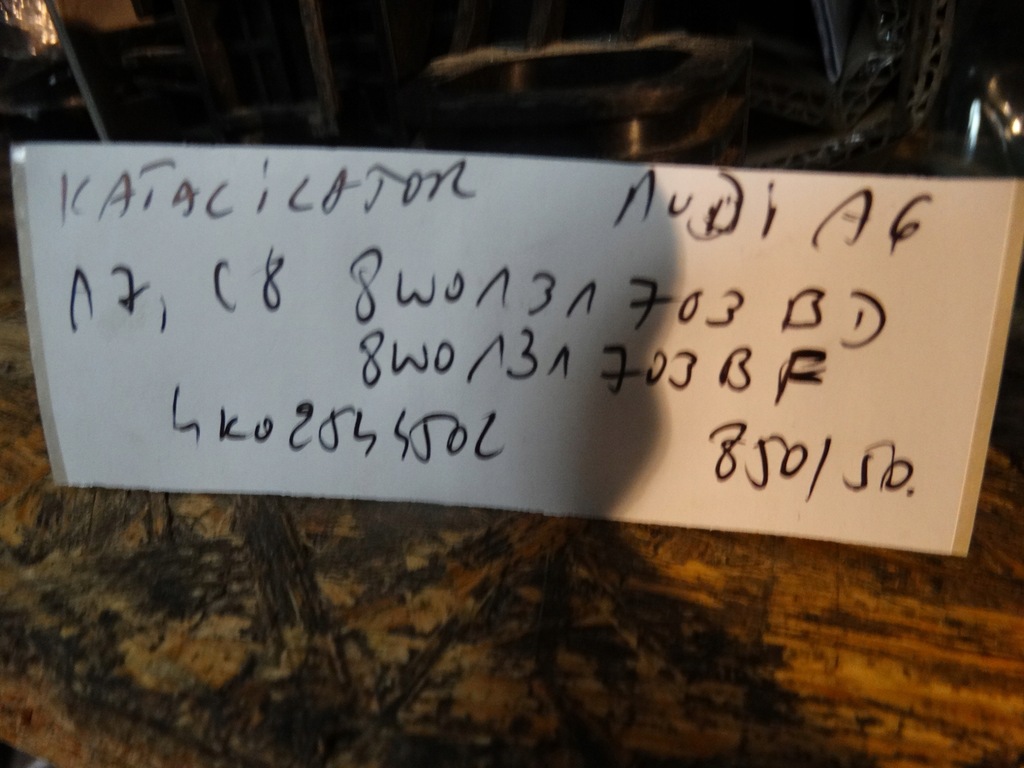 KATALIZATOR AUDI A6
A7, C8 8W0131703BD
8W0131703BF
4K0254450L
850/50.